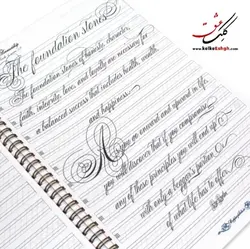 کلک عشق
www.kelkeeshgh.com
The foundation stones
The foundation stones of honesty, character,
faith, integrity, love, and loyalty are necessary for
a balanced success that includes health, wealth,
and happiness.
As you go onward and upward in life,
you will discover that if you compromise
any of these principles you will end up
with only a beggar's portion
of what life has to offer.